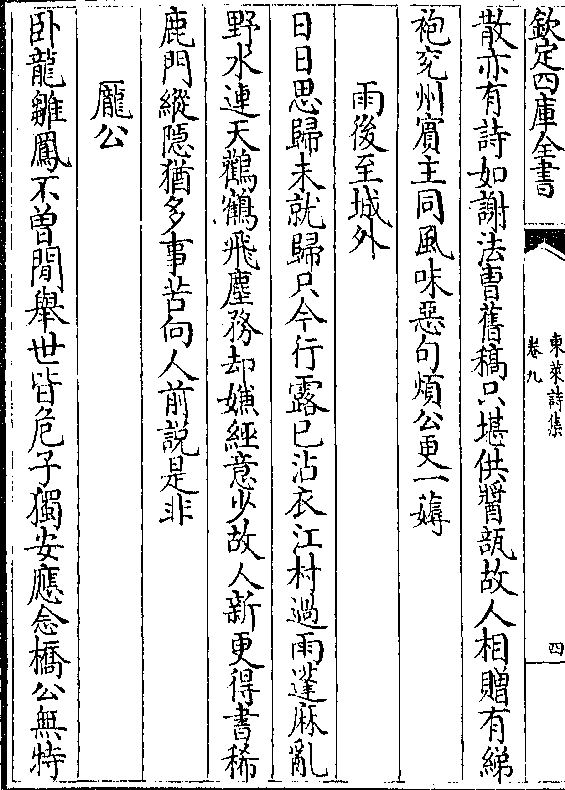 欽定四庫全書
東萊詩集
卷九
四
散亦有詩如謝法曹舊稿只堪供醬瓿故人相贈有綈
袍兖州賓主同風味惡句煩公更一薅
雨後至城外
日日思歸未就歸只今行露已沾衣江村過雨蓬麻亂
野水連天鸛鶴飛塵務却嫌經意少故人新更得書稀
鹿門縱隱猶多事苦向人前説是非
龎公
卧龍雛鳳不曽閒舉世皆危子獨安應念橋公無特